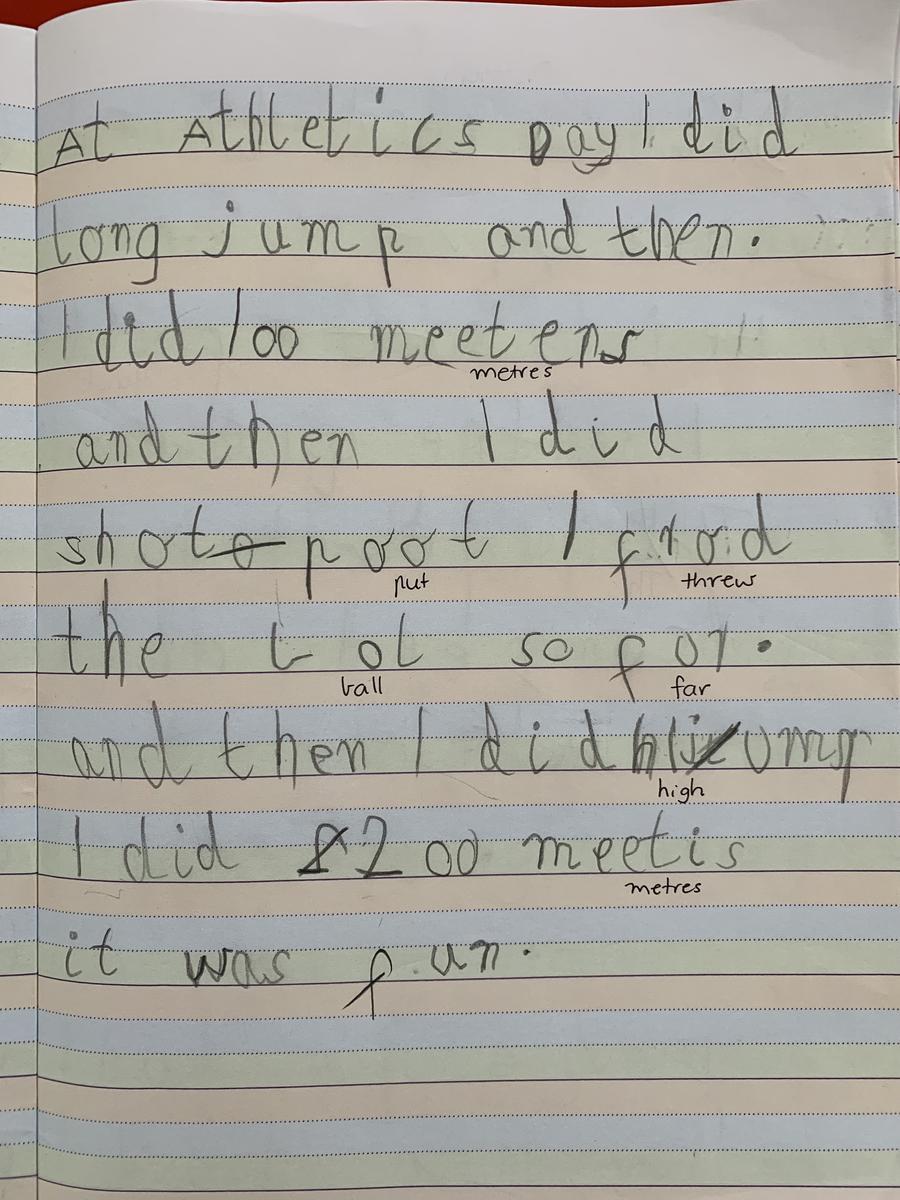 At Athletics Day I did
long jump and then.
I did 100 meetens
metres
and then I did
shot poot I frod
put threw
the bol so for.
ball far
and then I did hi jump
high
I did 200 meetis
metres
it was fun.